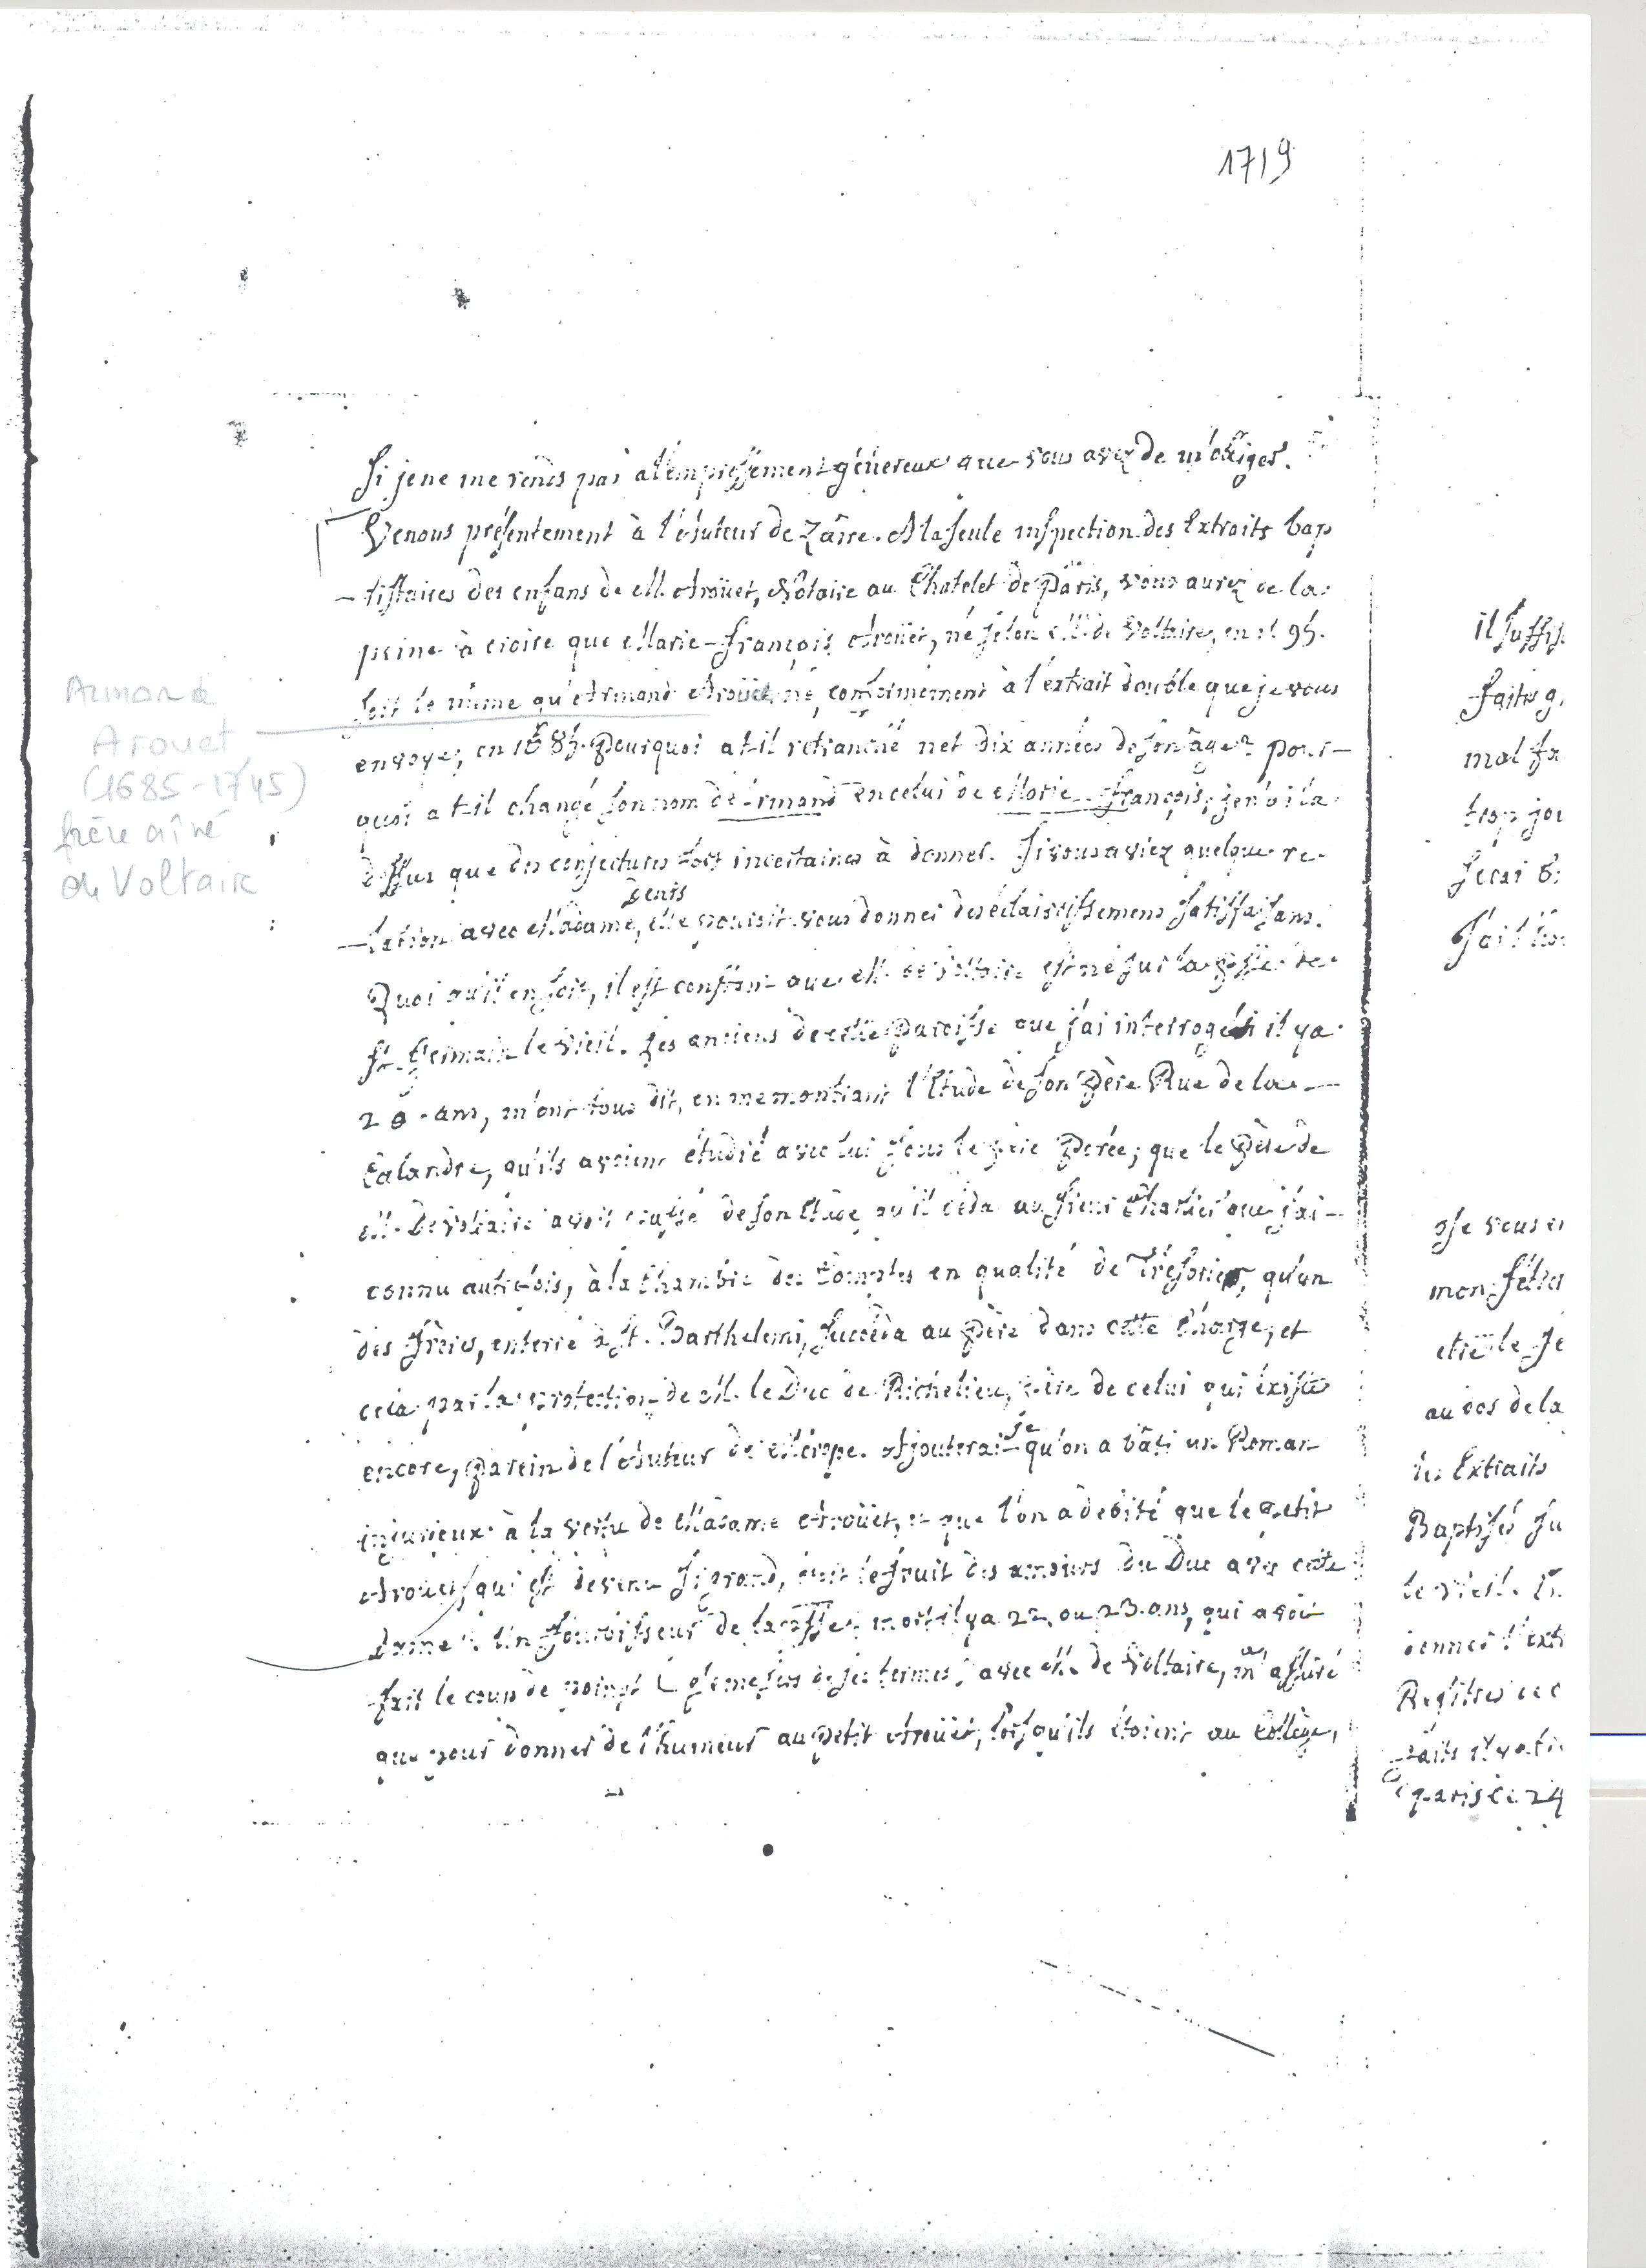 1719
Si je ne me rends pas à l'empressement généreux que vous avez de m'obliger.
Venons présentement à l'Auteur de Zaïre. A la seule inspection des Extraits bap
-tistaires des enfans de M. Aroüet, Notaire au Chatelet de Paris, vous aurez de la
peine à croire que Marie-François Aroüet, né selon M. de Voltaire, en 1695.
soit le même qu'Armand Aroüet né, conformement à l'extrait double que je vous
envoye, en 1685. Pourquoi a t-il retranché net dix années de son âge? pour-
quoi a t-il changé son nom d'Armand en celui de Marie-François; je n'ai là
dessus que des conjectures fort incertaines à donner. Si vous aviez quelque re-
Denis
-lation avec Madame, elle pourroit vous donner des éclaircissemens satisfaisans.
Quoi qu'il en soit, il est constant que M. de Voltaire est né sur la psse de
St. Germain le vieil. Les anciens de cette Paroisse que j'ai interrogés il y a
20 ans, m'ont tous dit, en me montrant l'Etude de son Père Rue de la
Calandre, qu'ils avoient étudié avec lui sous le père Porée; que le Père de
M. De Voltaire avoit passé de son Etude qu'il céda au Sieur que j'ai
connu autrefois, à la Chambre des Comptes en qualité de Trésorier, qu'un
des frères, enterré à St. Barthelemi, succéda au Père dans cette Charge, et
cela par la protection de M. le Duc de Richelieu, père de celui qui éxiste
encore, Parein de l'Auteur de Mérope. Ajouterai-je qu'on a bâti un Roman
injurieux à la vertu de Madame Aroüet, et que l'on a débité que le petit
Aroüet, qui est devenu si grand, étoit le fruit des amours du Duc avec cette
Dame. Un fourbisseur de la psse mort il y a 22 ou 23 ans, qui avoit
fait le coup de poing (je me sers de ses termes) avec M. de Voltaire, m'a assuré
que pour donner de l'humeur au petit Aroüet, lorsqu'ils étoient au Collège,
Armand
Arouet
(1685-1745)
frère aîné
de Voltaire
il suffis
faits g
mal fa
trop jou
serai
Je vous en
mon
être le Se
au bas de la
des Extraits
Baptisés su
le vieil.
donner l'ext
Registres de c
Paris ce 24